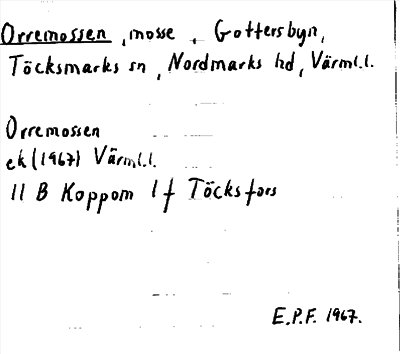 Orremossen, mosse, Gottersbyn,
Töcksmarks sn, Nordmarks hd, Värml.l.
Orremossen
ek (1967) Värml.l.
11 B Koppom 1 f Töcksfors
E.P.F. 1967.